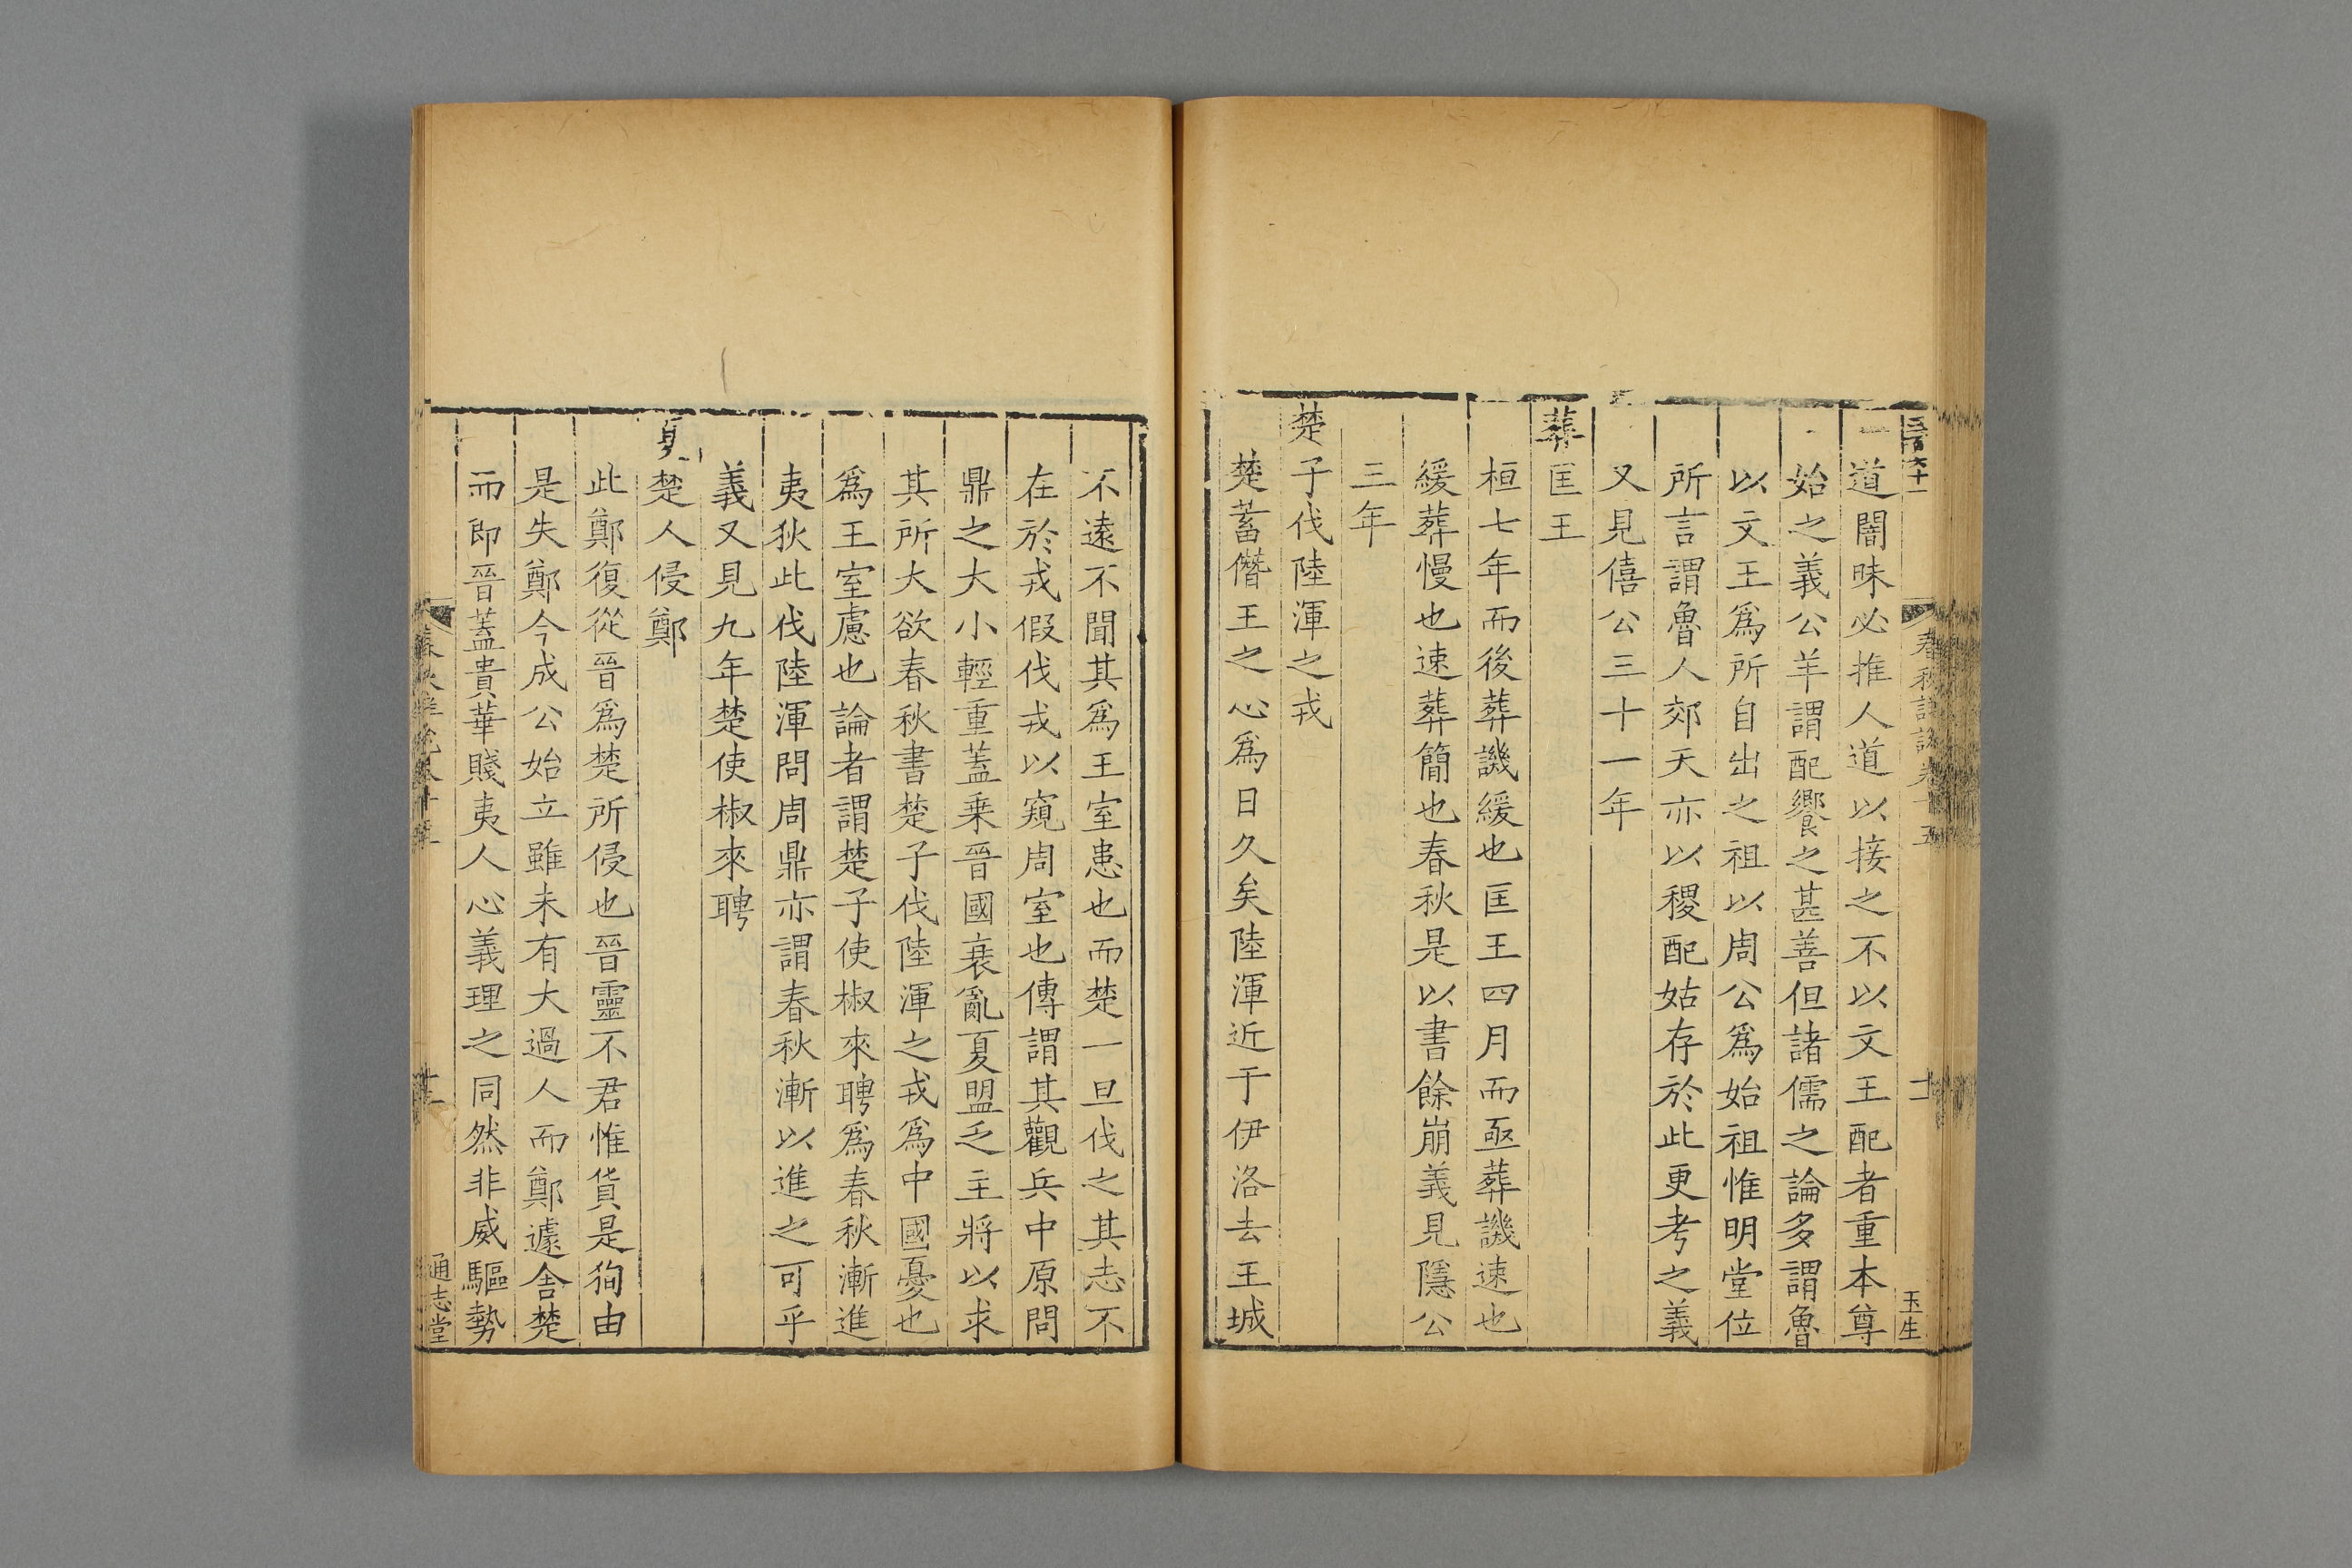 道闇昧必推人道以接之不以文王配者重本尊
始之義公羊謂配饗之甚善但諸儒之論多謂魯
以文王爲所自出之祖以周公爲始祖惟明堂位
所言謂魯人郊天亦以稷配姑存於此更考之義
又見僖公三十一年
葬匡王
桓七年而後葬譏緩也匡王四月而亟葬譏速也
緩葬慢也速葬簡也春秋是以書餘崩義見隱公
三年
楚子伐陸渾之戎
楚蓄僭王之心爲日久矣陸渾近于伊洛去王城
不遠不聞其爲王室患也而楚一旦伐之其志不
在於戎假伐戎以窺周室也傳謂其觀兵中原問
鼎之大小輕重蓋乗晉國衰亂夏盟乏主將以求
其所大欲春秋書楚子伐陸渾之戎爲中國憂也
爲王室慮也論者謂楚子使椒來聘爲春秋漸進
夷狄此伐陸渾問周鼎亦謂春秋漸以進之可乎
義又見九年楚使椒來聘
夏楚人侵鄭
此鄭復從晉爲楚所侵也晉靈不君惟貨是徇由
是失鄭今成公始立雖未有大過人而鄭遽舍楚
而即晉蓋貴華賤夷人心義理之同然非威驅勢
通志堂
春秋詳說卷十五
十一
玉生